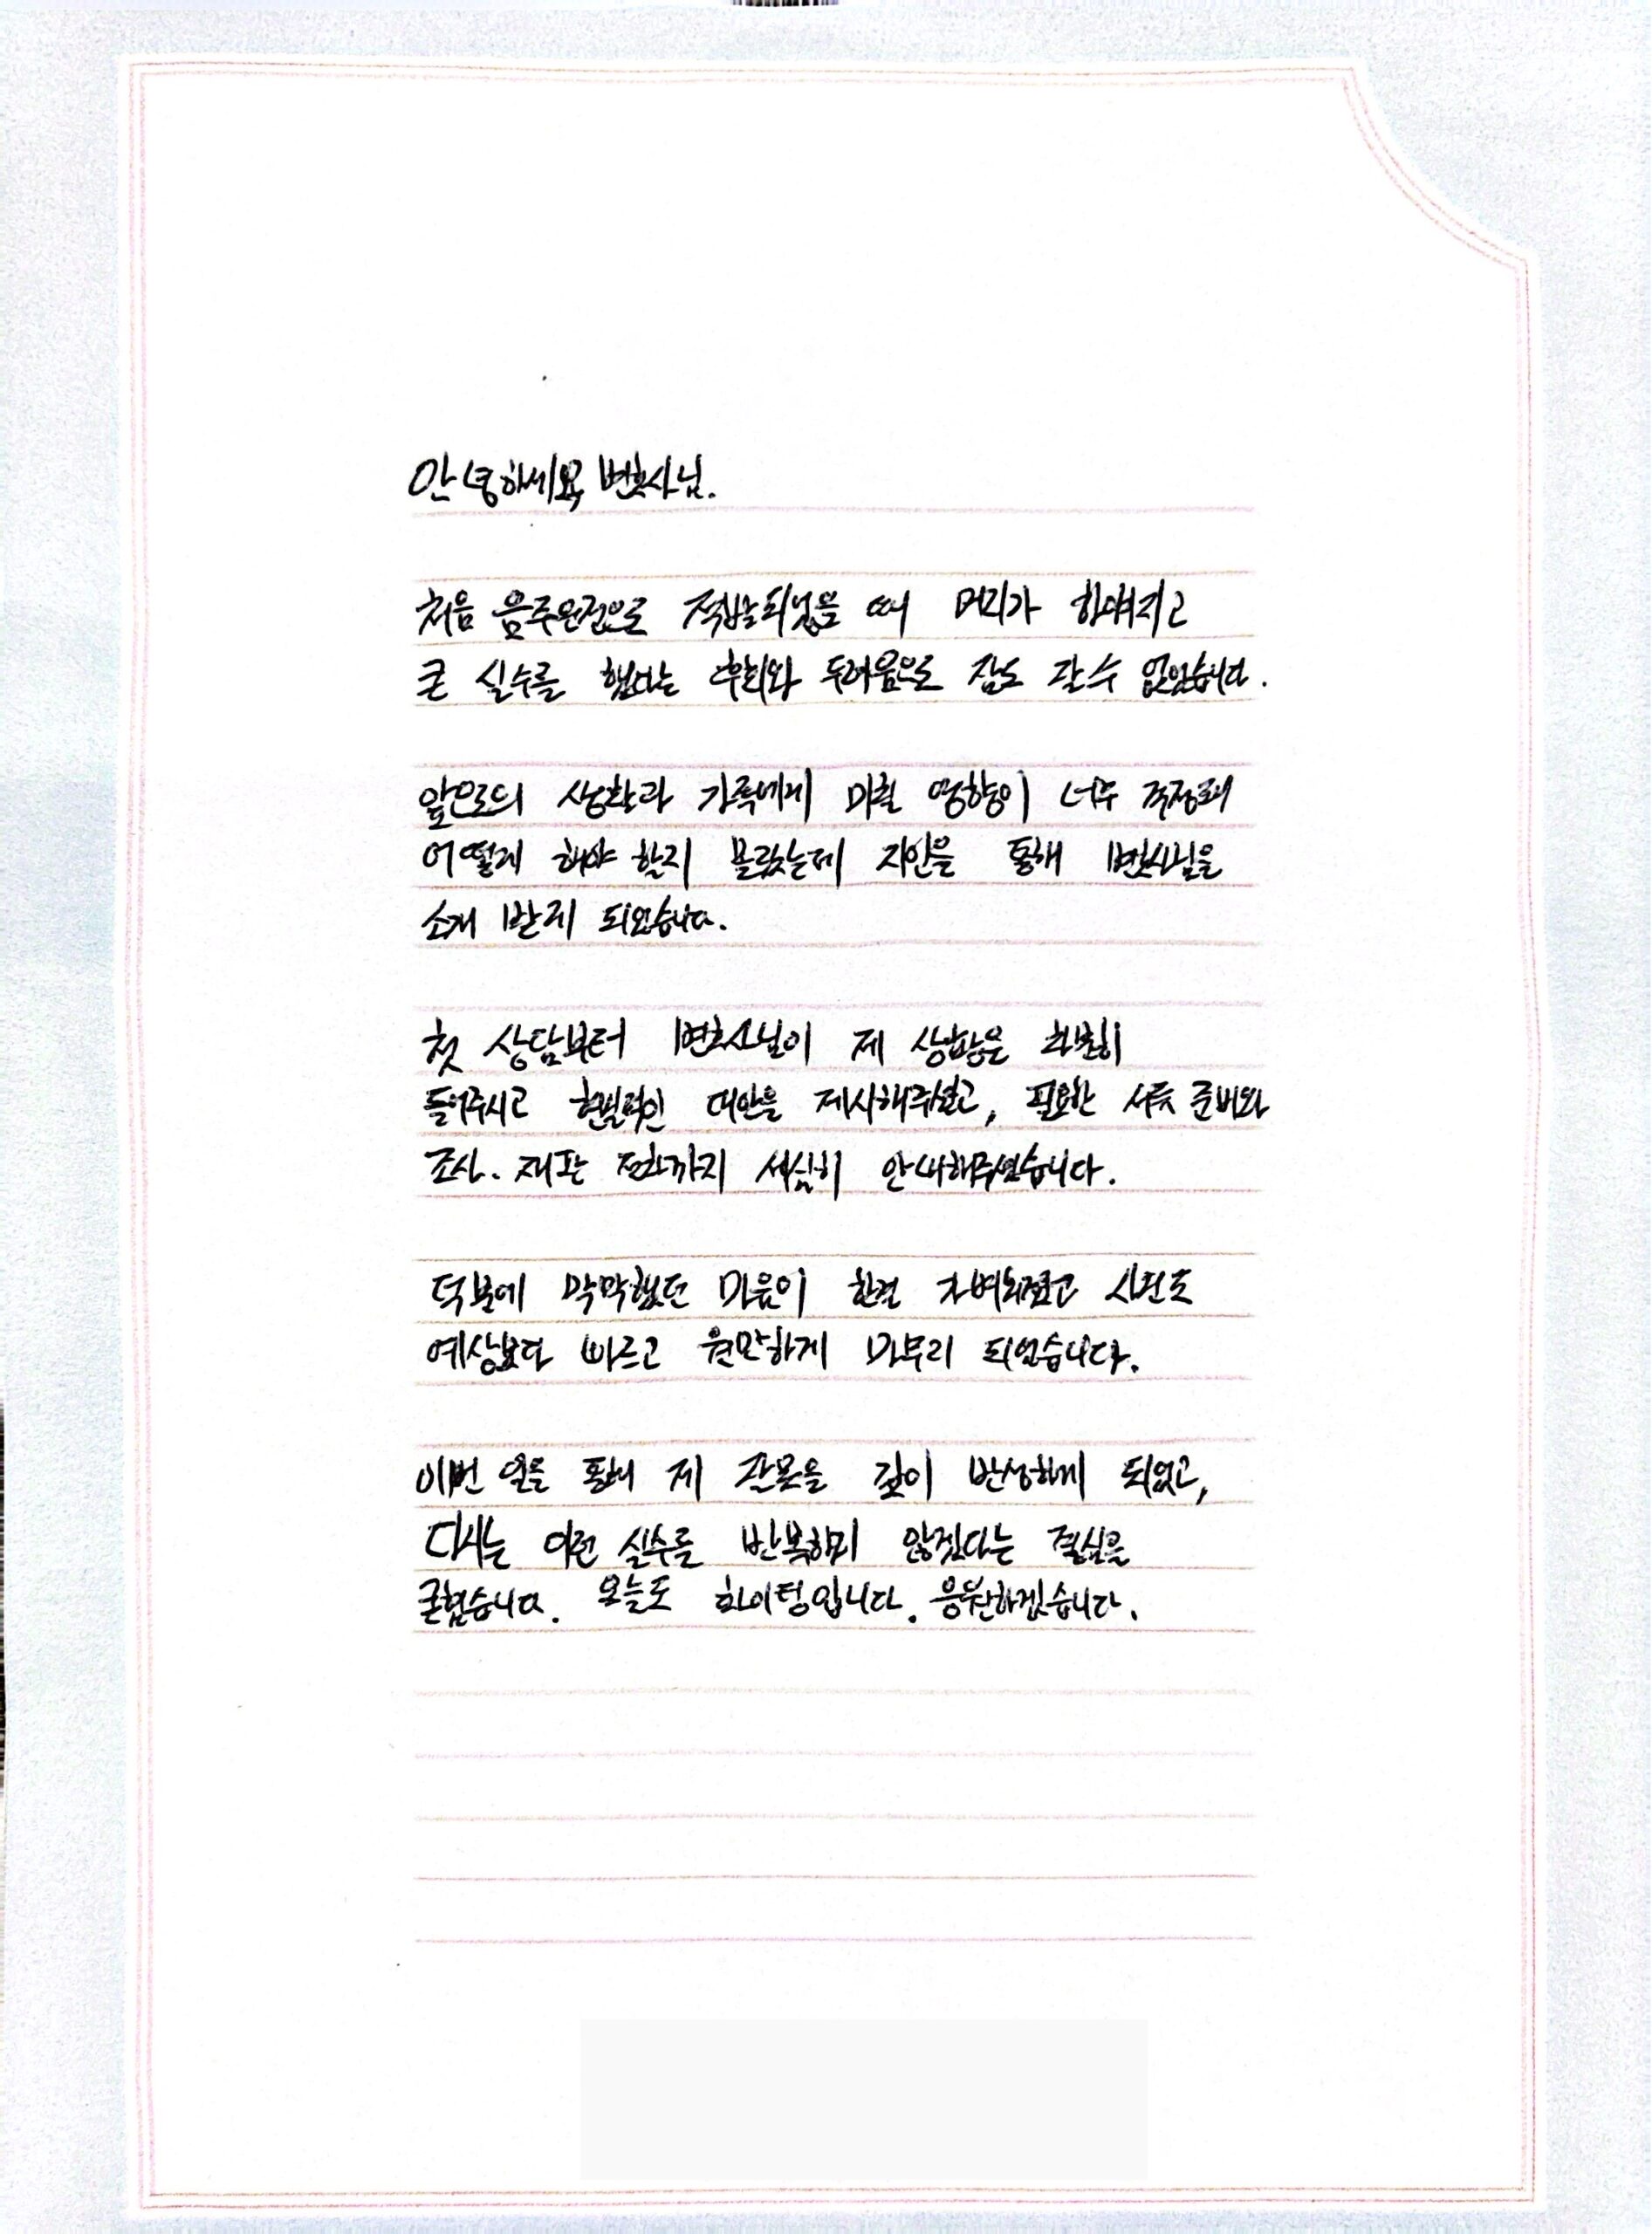 안녕하세요 변호사님.
처음 음주운전으로 적발되었을 때 머리가 하얘지고
큰 실수를 했다는 후회와 두려움으로 잠도 잘 수 없었습니다.
앞으로의 생활과 가족에게 미칠 영향이 너무 걱정돼
어떻게 해야 할지 몰랐는데 지인을 통해 변호사님을
소개 받게 되었습니다.
첫 상담부터 변호사님이 제 상황을 차분히
들어주시고 현실적인 대안을 제시해주셨고, 필요한 서류 준비와
조사. 재판 절차까지 세심히 안내해주셨습니다.
덕분에 막막했던 마음이 한결 가벼워졌고 사건도
예상보다 빠르고 원만하게 마무리 되었습니다.
이번 일을 통해 제 잘못을 깊이 반성하게 되었고,
다시는 이런 실수를 반복하지 않겠다는 결심을
굳혔습니다. 오늘도 화이팅입니다. 응원하겠습니다.